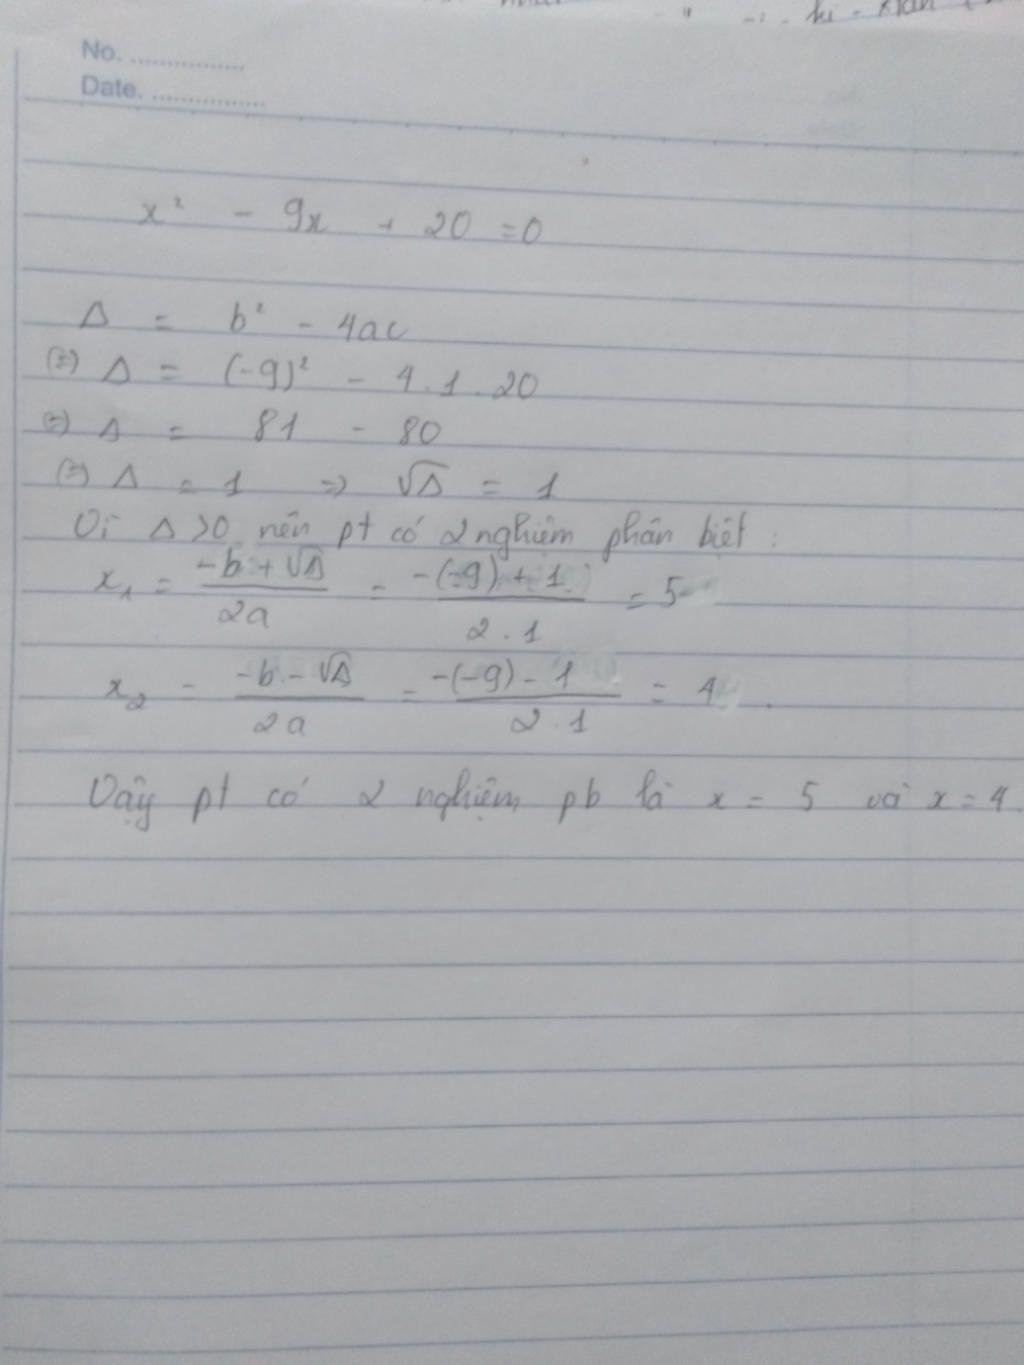 No. ................
Date. ................
x² - 9x + 20 = 0
Δ = b² - 4ac
(=) Δ = (-9)² - 4.1.20
(=) Δ = 81 - 80
(=) Δ = 1 => √Δ = 1
Vì Δ > 0 nên pt có 2 nghiệm phân biệt :
x₁ = (-b + √Δ)/(2a) = (-(-9) + 1)/(2.1) = 5
x₂ = (-b - √Δ)/(2a) = (-(-9) - 1)/(2.1) = 4.
Vậy pt có 2 nghiệm pb là x = 5 và x = 4.